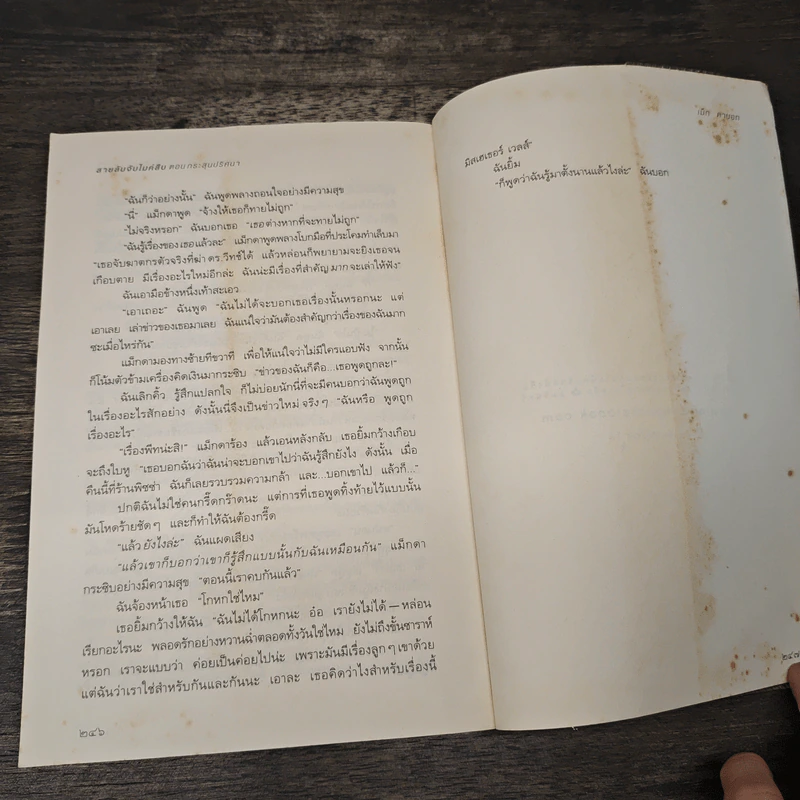 สายลับจับไมค์สืบ ตอน กระสุนปริศนา
"ฉันก็ว่าอย่างนั้น" ฉันพูดพลางถอนใจอย่างมีความสุข
"นี่" แม็กดาพูด "จ้างให้เธอก็ทายไม่ถูก"
"ไม่จริงหรอก" ฉันบอกเธอ "เธอต่างหากที่จะทายไม่ถูก"
"ฉันรู้เรื่องของเธอแล้วละ" แม็กดาพูดพลางโบกมือที่ประโคมทำเล็บมา
"เธอจับฆาตกรตัวจริงที่ฆ่า ดร.วิทช์ได้ แล้วหล่อนก็พยายามจะยิงเธอจน
เกือบตาย มีเรื่องอะไรใหม่อีกล่ะ ฉันน่ะมีเรื่องที่สำคัญมากจะเล่าให้ฟัง"
ฉันเอามือข้างหนึ่งเท้าสะเอว
"เอาเถอะ" ฉันพูด "ฉันไม่ได้จะบอกเธอเรื่องนั้นหรอกนะ แต่
เอาเลย เล่าข่าวของเธอมาเลย ฉันแน่ใจว่ามันต้องสำคัญกว่าเรื่องของฉันมาก
ซะเมื่อไหร่กัน"
แม็กดามองทางซ้ายทีขวาที เพื่อให้แน่ใจว่าไม่มีใครแอบฟัง จากนั้น
ก็โน้มตัวข้ามเครื่องคิดเงินมากระซิบ "ข่าวของฉันก็คือ...เธอพูดถูกละ!"
ฉันเลิกคิ้ว รู้สึกแปลกใจ ก็ไม่บ่อยนักนี่ที่จะมีคนบอกว่าฉันพูดถูก
ในเรื่องอะไรสักอย่าง ดังนั้นนี่จึงเป็นข่าวใหม่จริงๆ "ฉันหรือ พูดถูก
เรื่องอะไร"
"เรื่องพีทน่ะสิ!" แม็กดาร้อง แล้วเอนหลังกลับ เธอยิ้มกว้างเกือบ
จะถึงใบหู "เธอบอกฉันว่าฉันน่าจะบอกเขาไปว่าฉันรู้สึกยังไง ดังนั้น เมื่อ
คืนนี้ที่ร้านพิซซ่า ฉันก็เลยรวบรวมความกล้า และ...บอกเขาไป แล้วก็..."
ปกติฉันไม่ใช่คนกรี๊ดกร๊าดนะ แต่การที่เธอพูดทิ้งท้ายไว้แบบนั้น
มันโหดร้ายชัดๆ และก็ทำให้ฉันต้องกรี๊ด
"แล้วยังไงล่ะ" ฉันแผดเสียง
"แล้วเขาก็บอกว่าเขาก็รู้สึกแบบนั้นกับฉันเหมือนกัน" แม็กดา
กระซิบอย่างมีความสุข "ตอนนี้เราคบกันแล้ว"
ฉันจ้องหน้าเธอ "โกหกใช่ไหม"
เธอยิ้มกว้างให้ฉัน "ฉันไม่ได้โกหกนะ อ๋อ เรายังไม่ได้—หล่อน
เรียกอะไรนะ พลอดรักอย่างหวานฉ่ำตลอดทั้งวันใช่ไหม ยังไม่ถึงขั้นซาราห์
หรอก เราจะแบบว่า ค่อยเป็นค่อยไปน่ะ เพราะมันมีเรื่องลูกๆ เขาด้วย
แต่ฉันว่าเราใช่สำหรับกันและกันนะ เอาละ เธอคิดว่าไงสำหรับเรื่องนี้
๒๔๖
เม็ก คาบอท
มิสเฮเธอร์ เวลส์"
ฉันยิ้ม
"ก็พูดว่าฉันรู้มาตั้งนานแล้วไงล่ะ" ฉันบอก
๒๔๗